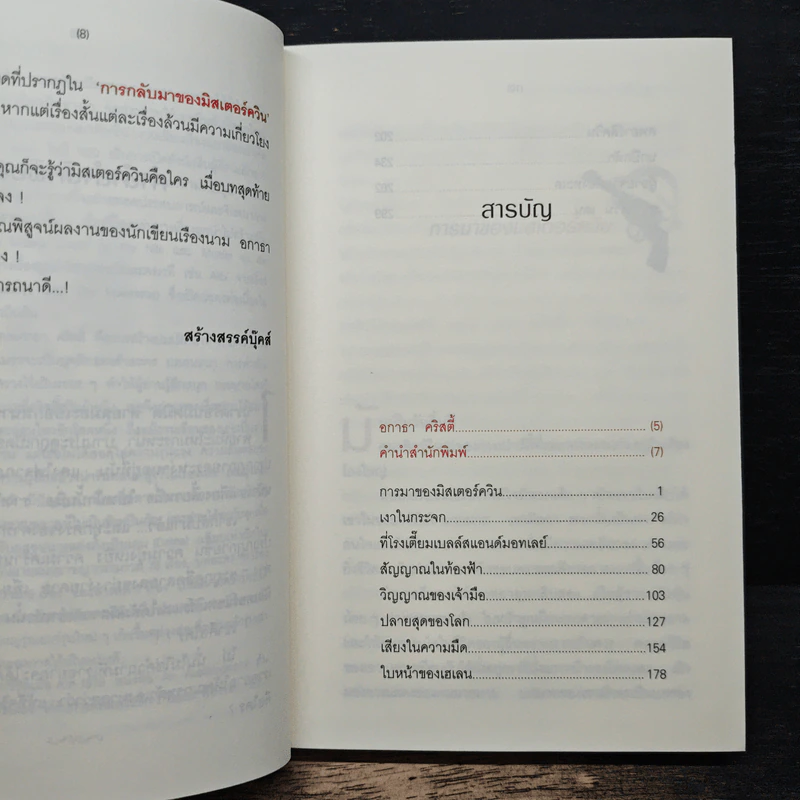 (8)
ดที่ปรากฏใน 'การกลับมาของมิสเตอร์ควิน'
หากแต่เรื่องสั้นแต่ละเรื่องล้วนมีความเกี่ยวโยง
คุณก็จะรู้ว่ามิสเตอร์ควินคือใคร เมื่อบทสุดท้าย
ลง !
ณพิสูจน์ผลงานของนักเขียนเรืองนาม อกาธา
ง !
ารถนาดี...!
สร้างสรรค์บุ๊คส์
สารบัญ
อกาธา คริสตี้ (5)
คำนำสำนักพิมพ์ (7)
การมาของมิสเตอร์ควิน 1
เงาในกระจก 26
ที่โรงเตี๊ยมเบลล์สแอนด์มอทเลย์ 56
สัญญาณในท้องฟ้า 80
วิญญาณของเจ้ามือ 103
ปลายสุดของโลก 127
เสียงในความมืด 154
ใบหน้าของเฮเลน 178